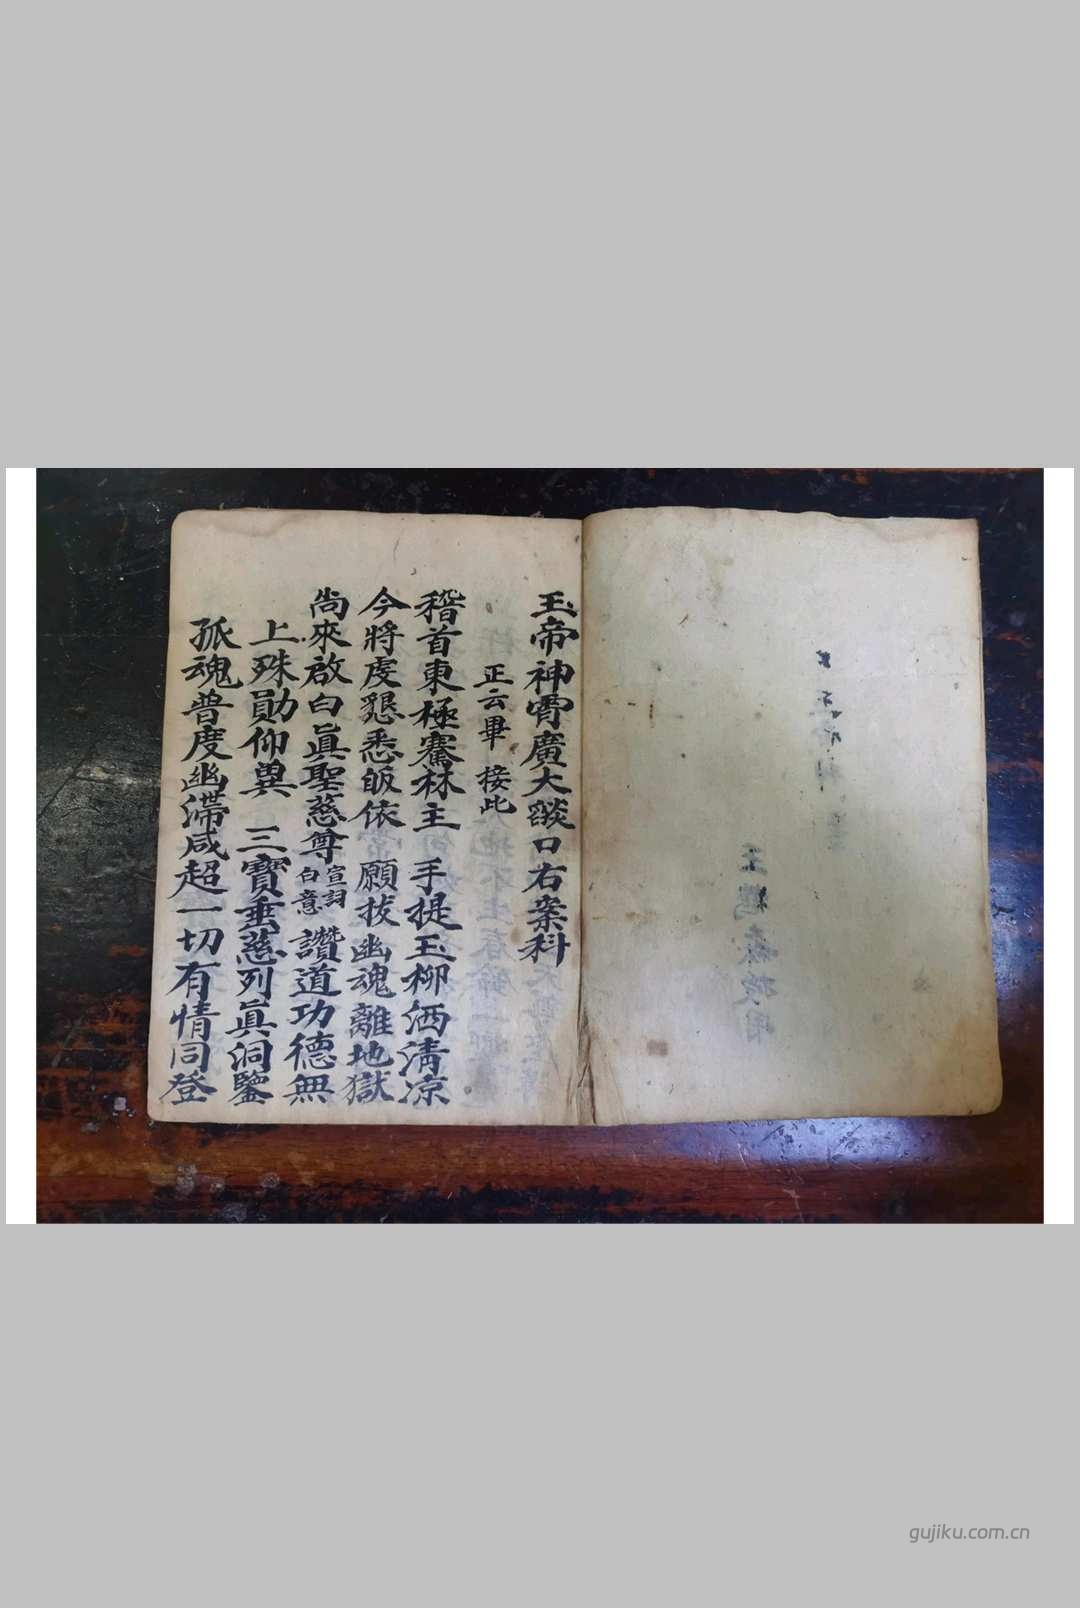 玉帝神霄廣大燄口右案科
正云畢 接此
稽首東極騫林主 手提玉柳洒清凉
今將虔懇悉皈依 願拔幽魂離地獄
尚來啟白眞聖慈尊 宣詞 白意 讚道功德無
上殊勛仰兾 三寶垂慈列眞洞鑒
孤魂普度幽滯咸超一切有情同登
gujiku.com.cn